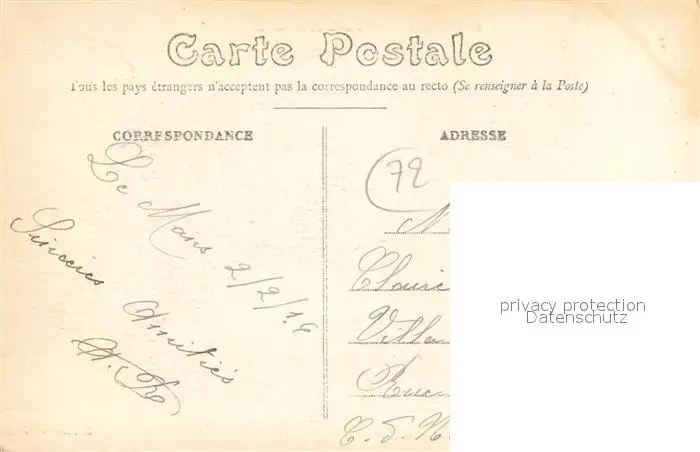 Carte Postale
Tous les pays étrangers n'acceptent pas la correspondance au recto (Se renseigner à la Poste)
CORRESPONDANCE
Le Mans 2/2/19
Sincères Amitiés
ADRESSE
72
M
Villa
Rue
privacy protection
Datenschutz